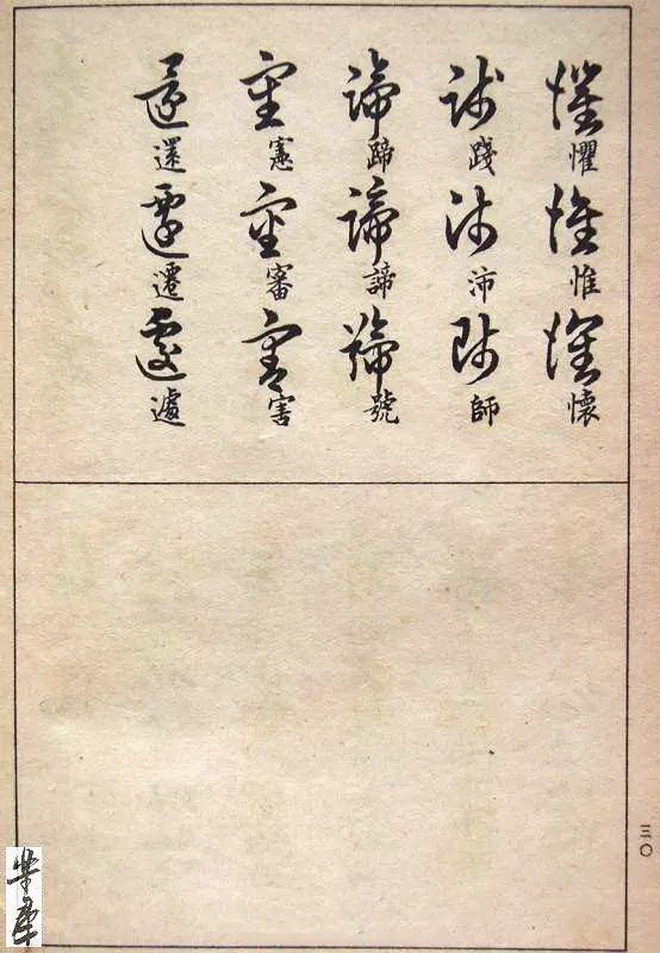 懼惟懷
踐沛師
蹄諦號
憲審害
還遷遽
三〇